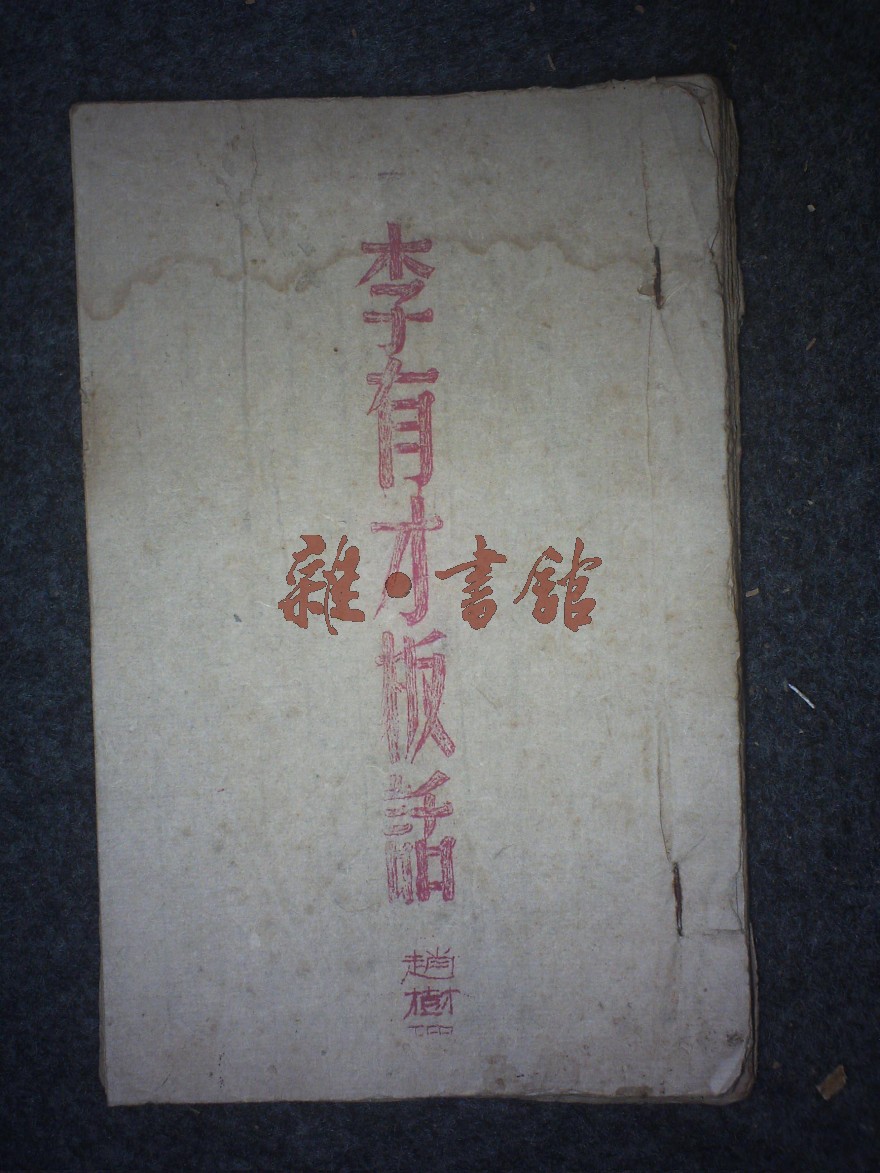 李有才板話
趙樹理
雜·書館